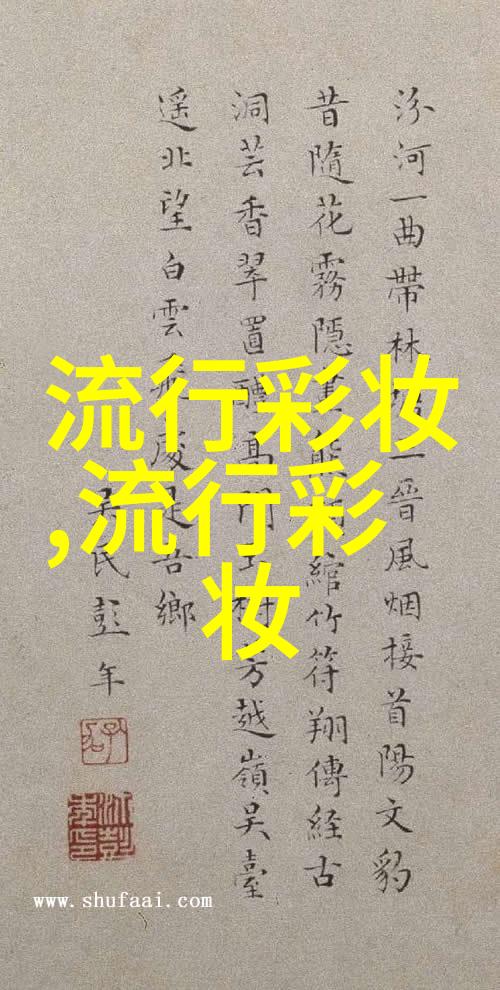 汾河一曲帶林晉風烟接首陽文豹
昔隨花霧隱熊綰竹符翔傳経古
洞芸香翠置醴高門芳越嶺吳臺
遥北望白雲飛處是吾鄉
民彭年
流行彩妆
,流行彩
妆
www.shufaai.com